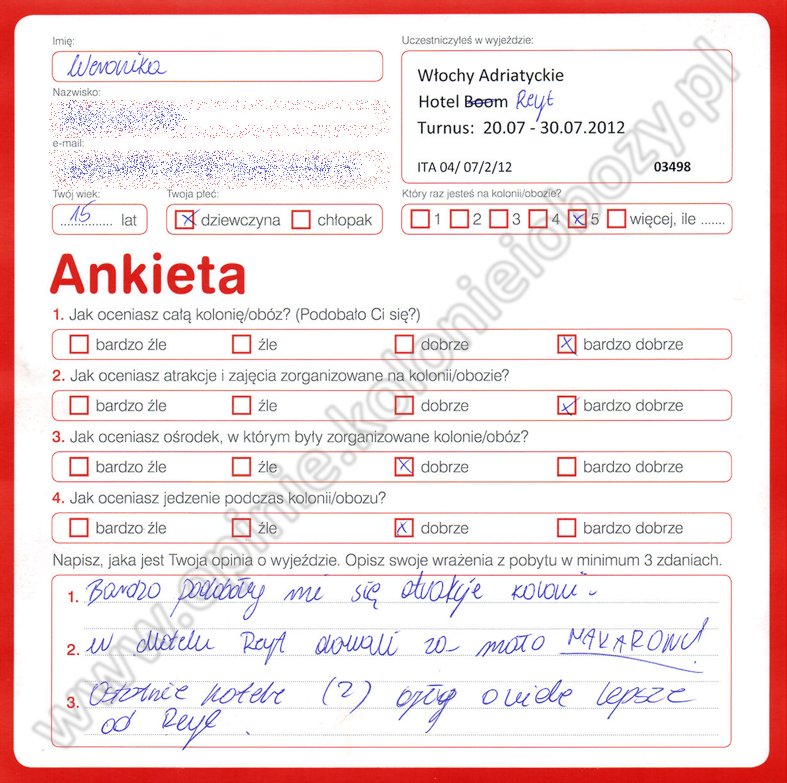 Imię:
Weronika
Nazwisko:
e-mail:
Twój wiek:
15 lat
Twoja płeć:
dziewczyna chłopak
Uczestniczyłeś w wyjeździe:
Włochy Adriatyckie
Hotel Boom Reyt
Turnus: 20.07 - 30.07.2012
ITA 04/ 07/2/12 03498
Który raz jesteś na kolonii/obozie?
1 2 3 4 5 więcej, ile .......
Ankieta
1. Jak oceniasz całą kolonię/obóz? (Podobało Ci się?)
bardzo źle źle dobrze bardzo dobrze
2. Jak oceniasz atrakcje i zajęcia zorganizowane na kolonii/obozie?
bardzo źle źle dobrze bardzo dobrze
3. Jak oceniasz ośrodek, w którym były zorganizowane kolonie/obóz?
bardzo źle źle dobrze bardzo dobrze
4. Jak oceniasz jedzenie podczas kolonii/obozu?
bardzo źle źle dobrze bardzo dobrze
Napisz, jaka jest Twoja opinia o wyjeździe. Opisz swoje wrażenia z pobytu w minimum 3 zdaniach.
1. Bardzo podobały mi się atrakcje kolonii.
2. W Hotelu Reyt dawali za mało MAKARONU!
3. Ostatnie hotele (2) były o lepsze
od Reyt.
www.opinie.kolonieiobozy.pl